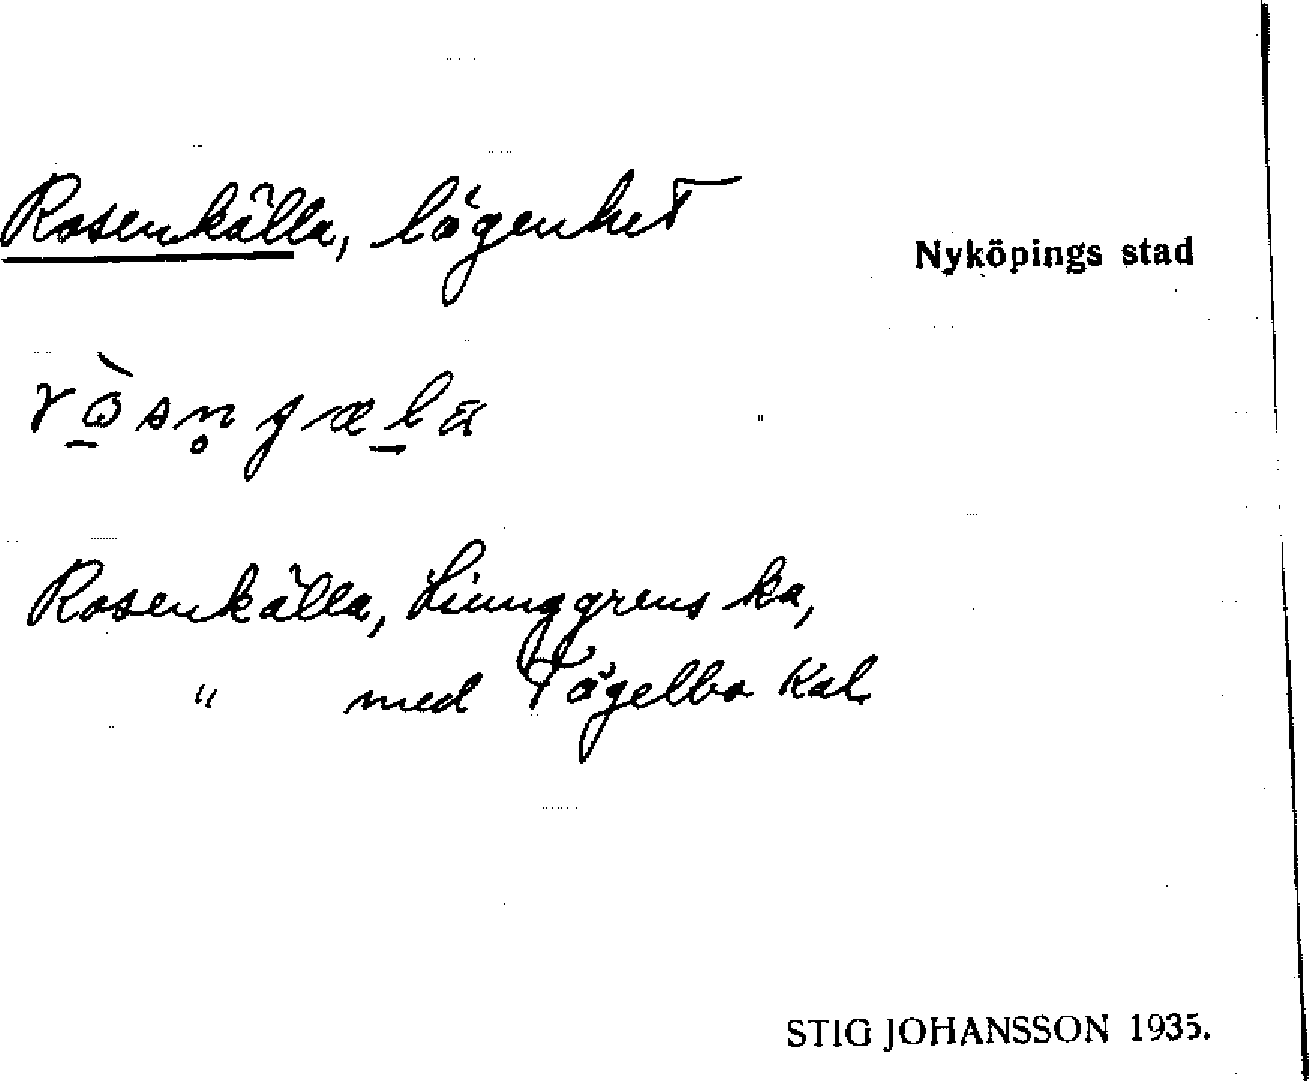 Rosenkälla, lägenhet
Nyköpings stad
Rosenkälla, Liunggrenska,
" med Fågelbo Kal.
STIG JOHANSSON 1935.